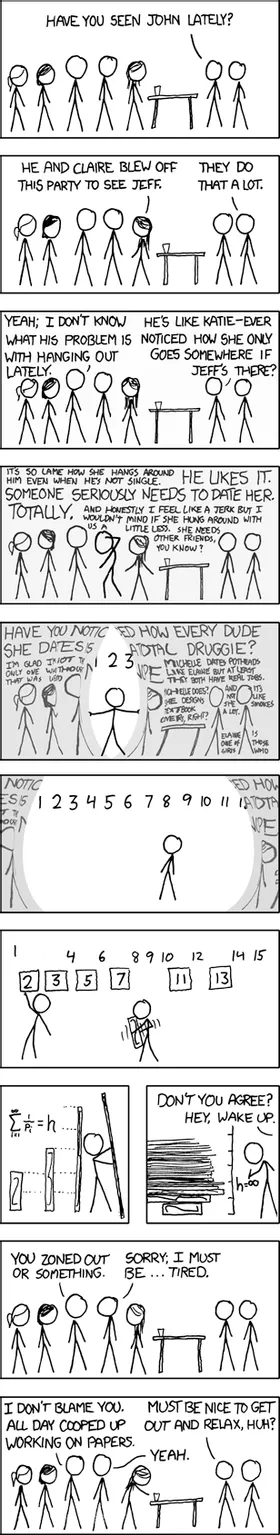 HAVE YOU SEEN JOHN LATELY?
HE AND CLAIRE BLEW OFF
THIS PARTY TO SEE JEFF.
THEY DO
THAT A LOT.
YEAH; I DON'T KNOW
WHAT HIS PROBLEM IS
WITH HANGING OUT
LATELY.
HE'S LIKE KATIE-EVER
NOTICED HOW SHE ONLY
GOES SOMEWHERE IF
JEFF'S THERE?
IT'S SO LAME HOW SHE HANGS AROUND
HIM EVEN WHEN HE'S NOT SINGLE.
HE LIKES IT.
SOMEONE SERIOUSLY NEEDS TO DATE HER.
TOTALLY.
AND HONESTLY I FEEL LIKE A JERK BUT I
WOULDN'T MIND IF SHE HUNG AROUND WITH
US A LITTLE LESS. SHE NEEDS
OTHER FRIENDS,
YOU KNOW?
HAVE YOU NOTICED HOW EVERY DUDE
SHE DATES IS A TOTAL DRUGGIE?
I'M GLAD I'M NOT THE
ONLY ONE WHO THOUGHT
THAT WAS
1 2 3
MICHELLE DATES POTHEADS
LIKE ELAINE BUT AT LEAST
THEY BOTH HAVE REAL JOBS.
MICHELLE DOES?
SHE DESIGNS
TEXTBOOK
COVERS, RIGHT?
AND
NOT
SHE
A LOT.
IT'S
LIKE
SMOKES
ELAINE IS
ONE OF THOSE
GIRLS WHO
NOTIC ED HOW
1 2 3 4 5 6 7 8 9 10 11 1
1 4 6 8 9 10 12 14 15
2 3 5 7 11 13
∞
∑ 1/Pi = h
i=1
DON'T YOU AGREE?
HEY, WAKE UP.
h=∞
YOU ZONED OUT
OR SOMETHING.
SORRY; I MUST
BE ... TIRED.
I DON'T BLAME YOU.
ALL DAY COOPED UP
WORKING ON PAPERS.
YEAH.
MUST BE NICE TO GET
OUT AND RELAX, HUH?